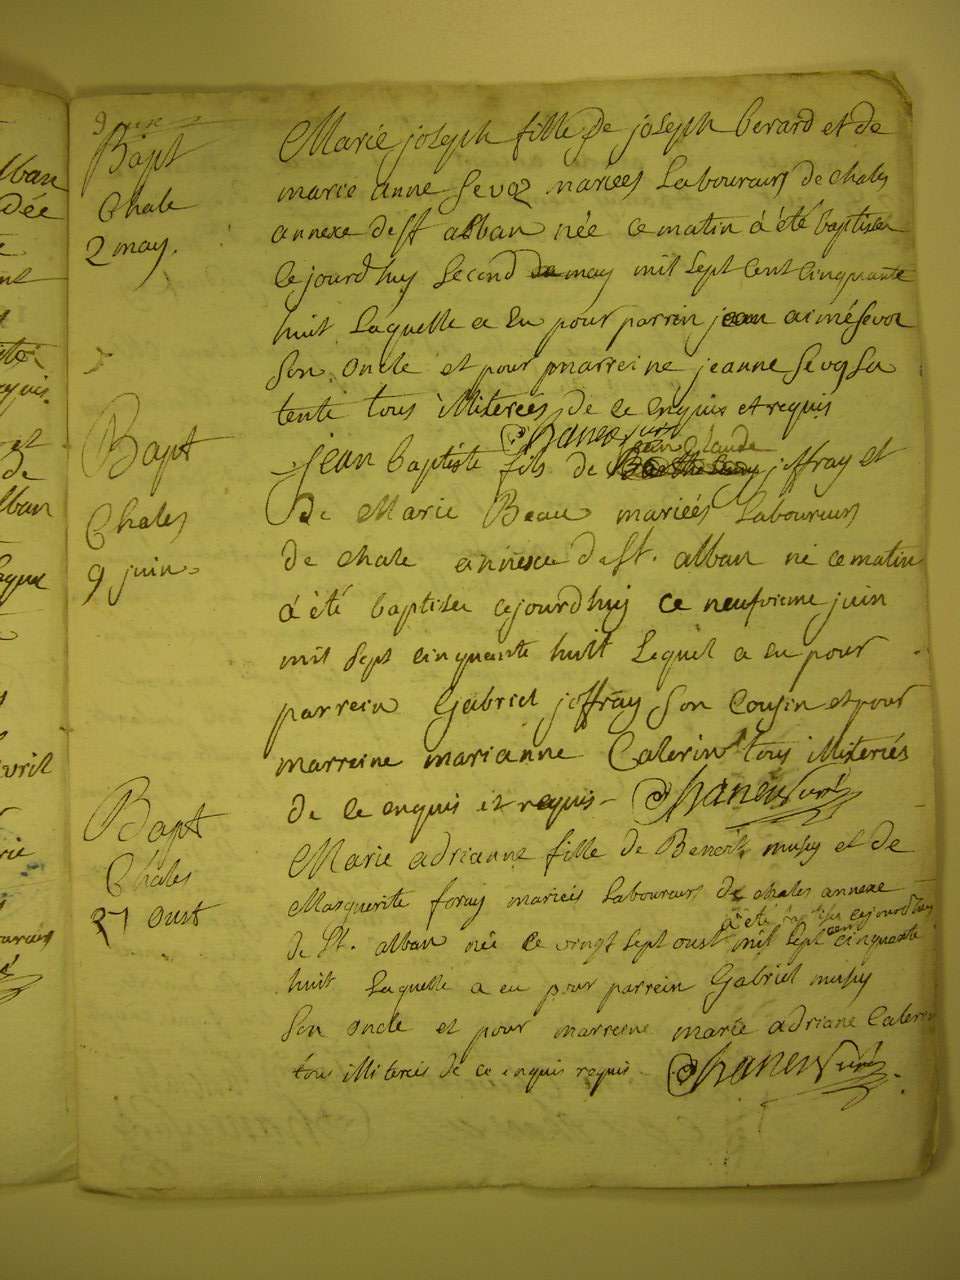 Bapt
Chale
2 may.
Marie joseph fille de joseph berard et de
marie anne Sevoz mariees Laboureurs de chales
annexe de st alban née ce matin à été baptisee
cejourd huy second de may mil sept cent cinquante
huit Laquelle a eu pour parrin jean aimé Sevoz
son oncle et pour marreine jeanne Sevoz sa
tente tous illiterees de ce enquis et requis
Chanen curé
Bapt
Chales
9 juin
jean claude
jean baptiste fils de joffray et
de Marie Beau mariées Laboureurs
de chale annexe de st. alban né ce matin
à été baptisee cejourdhuy ce neufvieme juin
mil sept cinquante huit Lequel a eu pour
parrein Gabriel joffray son cousin et pour
marreine marianne Caterin tous illiteriés
de ce enquis et requis - Chanen curé
Bapt
Chales
27 oust
Marie adrianne fille de Benoit musy et de
Marguerite foray mariées Laboureurs de chales annexe
à été baptisee cejourdhuy
de St. alban née ce vingt sept oust mil sept cent cinquante
huit Laquelle a eu pour parrein Gabriel musy
son oncle et pour marreine marie adriane Caterin
tous illiterés de ce enquis requis Chanen curé